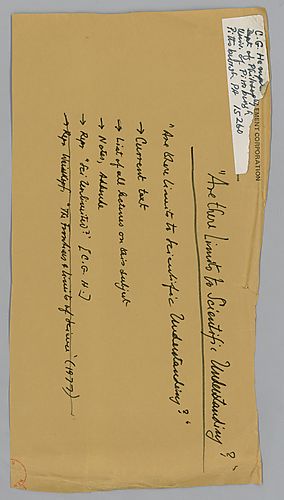 C. G. Hempel
Dept of Philos
Univ. of Pittsburgh
Pittsburgh PA 15260
ELEMENT CORPORATION
"Are there Limits to Scientific Understanding?"
"Are there Limits to Scientific Understanding?"
→ Current text
→ List of all lectures on this subject
→ Notes, Addenda
→ Rep. "Sci Unbounded?" [C. G. H.]
→ Rep. "The Frontiers & Limits of Science" (1977)